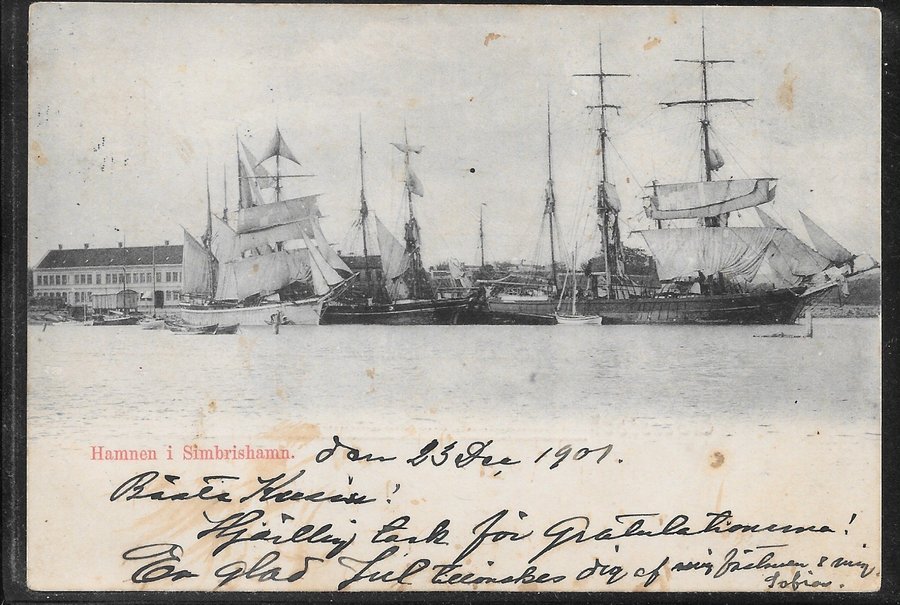 Hamnen i Simbrishamn.
den 23 Dec 1901.
Bästa Kusin!
Hjärtlig tack för Gratulationerna!
En glad Jul tillönskes dig af min fästmen & mig
Sofia.